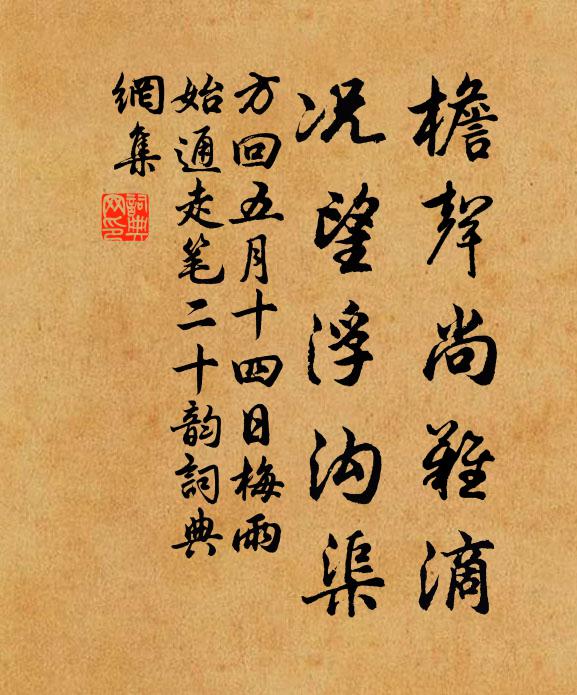 檐聲尚難滴
况望浮沟渠
方回五月十四日梅雨
始通走笔二十韵詞典
網集
詞典
网印